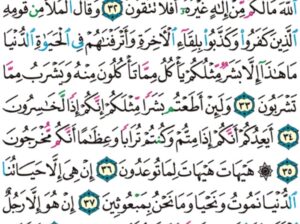 ٱللَّهَ مَالَكُم مِّنْ إِلَٰهٍ غَيْرُهُۥٓ أَفَلَا تَتَّقُونَ ٣٢ وَقَالَ ٱلْمَلَأُ مِن قَوْمِهِ
ٱلَّذِينَ كَفَرُوا۟ وَكَذَّبُوا۟ بِلِقَآءِ ٱلْأَخِرَةِ وَأَتْرَفْنَٰهُمْ فِى ٱلْحَيَوٰةِ ٱلدُّنْيَا
مَا هَٰذَآ إِلَّا بَشَرٌ مِّثْلُكُمْ يَأْكُلُ مِمَّا تَأْكُلُونَ مِنْهُ وَيَشْرَبُ مِمَّا
تَشْرَبُونَ ٣٣ وَلَئِنْ أَطَعْتُم بَشَرًا مِّثْلَكُمْ إِنَّكُمْ إِذًا لَّخَٰسِرُونَ
٣٤ أَيَعِدُكُمْ أَنَّكُمْ إِذَا مِتُّمْ وَكُنتُمْ تُرَابًا وَعِظَٰمًا أَنَّكُم مُّخْرَجُونَ
٣٥ ۞ هَيْهَاتَ هَيْهَاتَ لِمَا تُوعَدُونَ ٣٦ إِنْ هِىَ إِلَّا حَيَاتُنَا
ٱلدُّنْيَا نَمُوتُ وَنَحْيَا وَمَا نَحْنُ بِمَبْعُوثِينَ ٣٧ إِنْ هُوَ إِلَّا رَجُلٌ